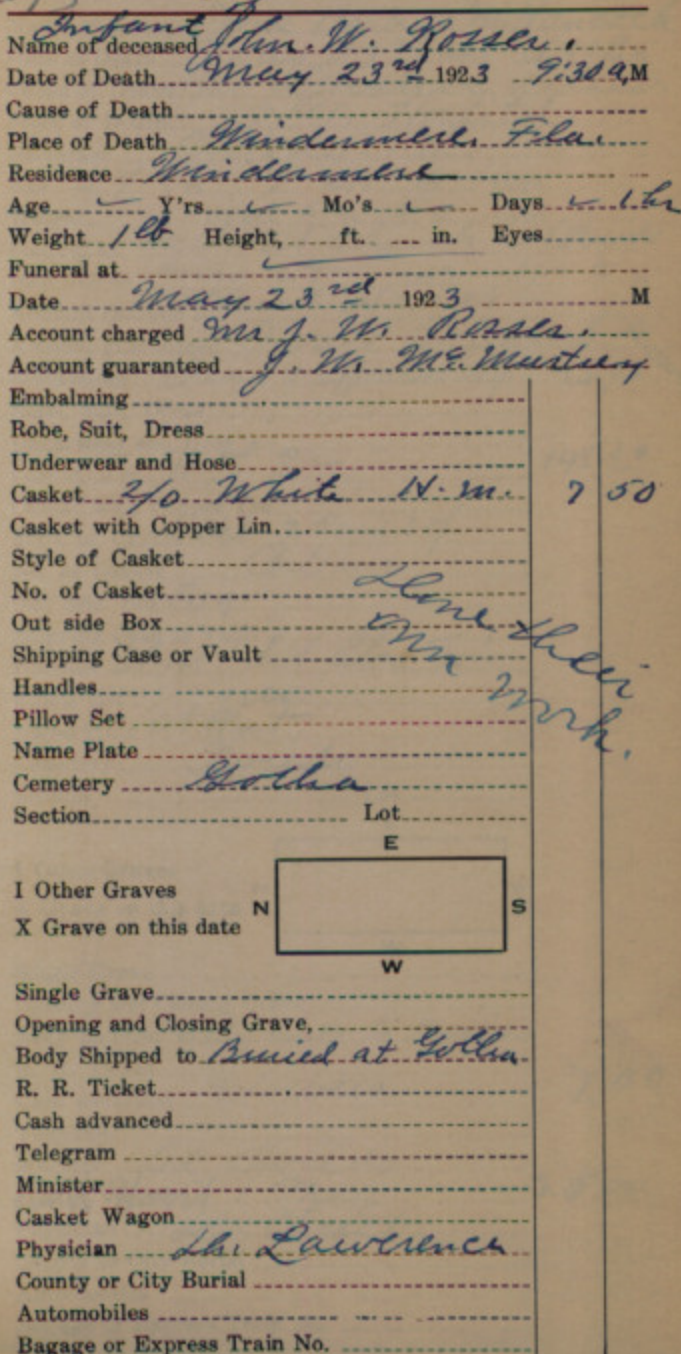 Infant
Name of deceased John. W. Rosser.
Date of Death May 23rd 1923 9:30 a,M
Cause of Death
Place of Death Windermere, Fla.
Residence Windermere
Age ✓ Y'rs ✓ Mo's ✓ Days ✓ 1 hr
Weight 1 lb Height, ft. in. Eyes
Funeral at ✓
Date May 23rd 1923 M
Account charged Mr J. W. Rosser.
Account guaranteed J. W. Mc.
Embalming
Robe, Suit, Dress
Underwear and Hose
Casket 2/0 White N. m. 7 50
Casket with Copper Lin.
Style of Casket
No. of Casket
Out side Box
Shipping Case or Vault
Handles
Done their
own work.
Pillow Set
Name Plate
Cemetery Gotha
Section Lot
E
I Other Graves
N S
X Grave on this date
W
Single Grave
Opening and Closing Grave,
Body Shipped to Buried at Gotha
R. R. Ticket
Cash advanced
Telegram
Minister
Casket Wagon
Physician Dr. Lawerence
County or City Burial
Automobiles
Bagage or Express Train No.